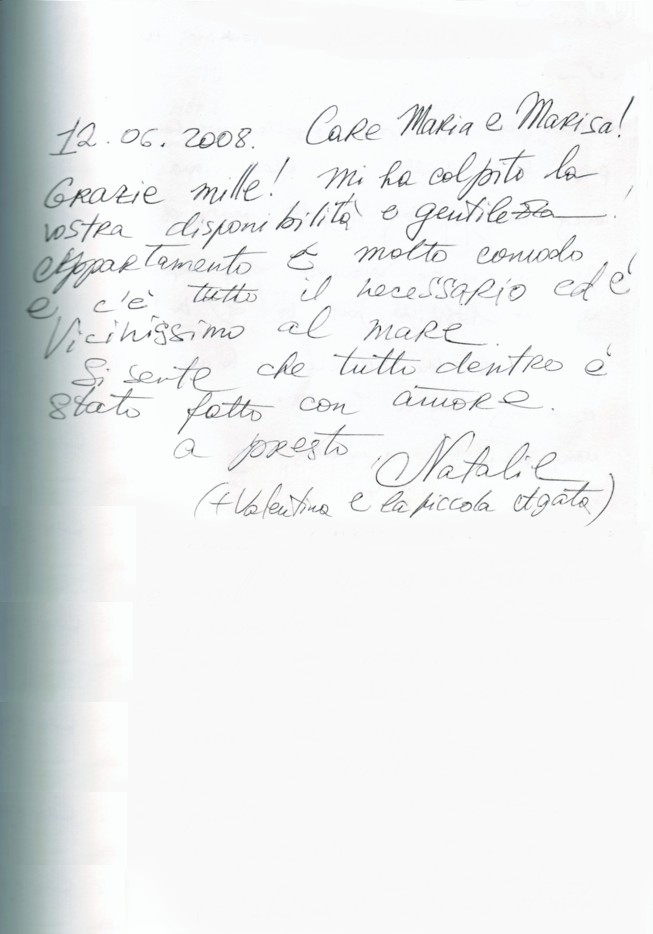 12.06.2008. Care Maria e Marisa!
Grazie mille! mi ha colpito la
vostra disponibilità e gentilezza!
Appartamento è molto comodo,
e c'è tutto il necessario ed è
Vicinissimo al mare.
Si sente che tutto dentro è
stato fatto con amore.
a presto, Natalie
(+Valentina e la piccola Agata)